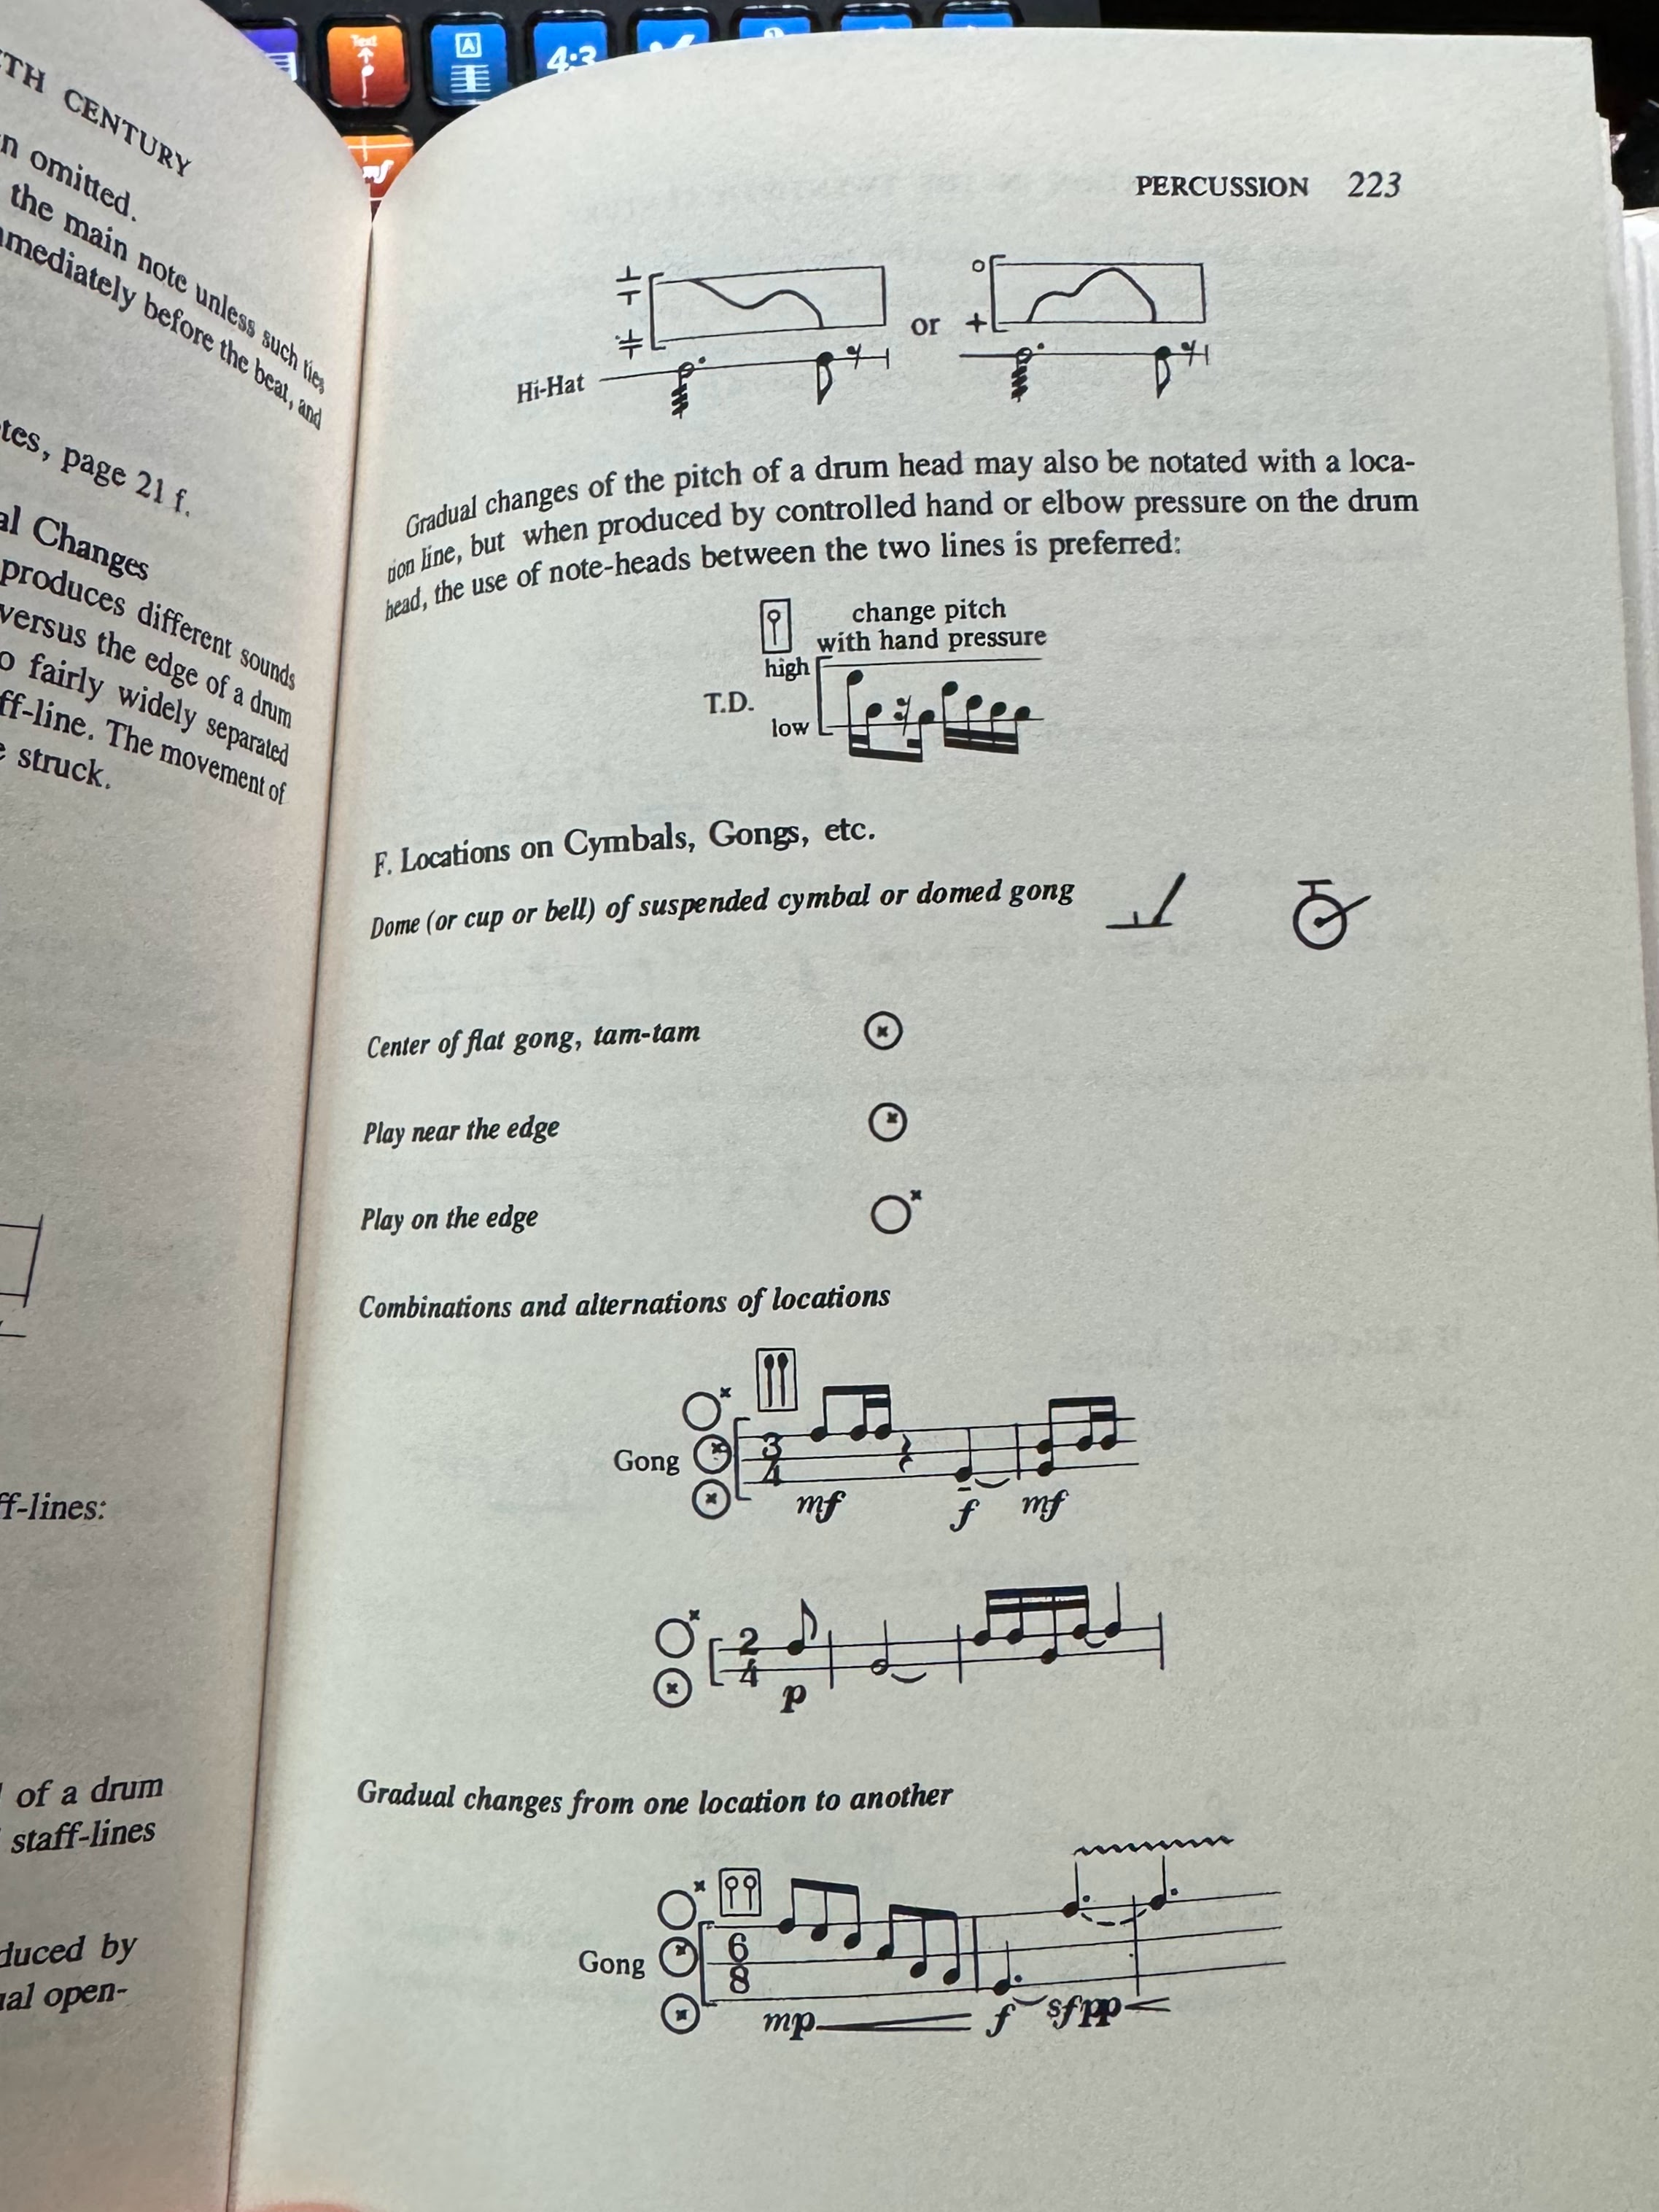 Text
A
4:3
mf
TH CENTURY
n omitted.
the main note unless such ties
mmediately before the beat, and
tes, page 21 f.
al Changes
produces different sounds
versus the edge of a drum
o fairly widely separated
ff-line. The movement of
e struck.
ff-lines:
of a drum
staff-lines
duced by
ual open-
PERCUSSION 223
or
Hi-Hat
Gradual changes of the pitch of a drum head may also be notated with a loca-
tion line, but when produced by controlled hand or elbow pressure on the drum
head, the use of note-heads between the two lines is preferred:
change pitch
with hand pressure
high
T.D.
low
F. Locations on Cymbals, Gongs, etc.
Dome (or cup or bell) of suspended cymbal or domed gong
Center of flat gong, tam-tam
Play near the edge
Play on the edge
Combinations and alternations of locations
Gong 3 4
mf f mf
2 4
p
Gradual changes from one location to another
Gong 6 8
mp f sfpp